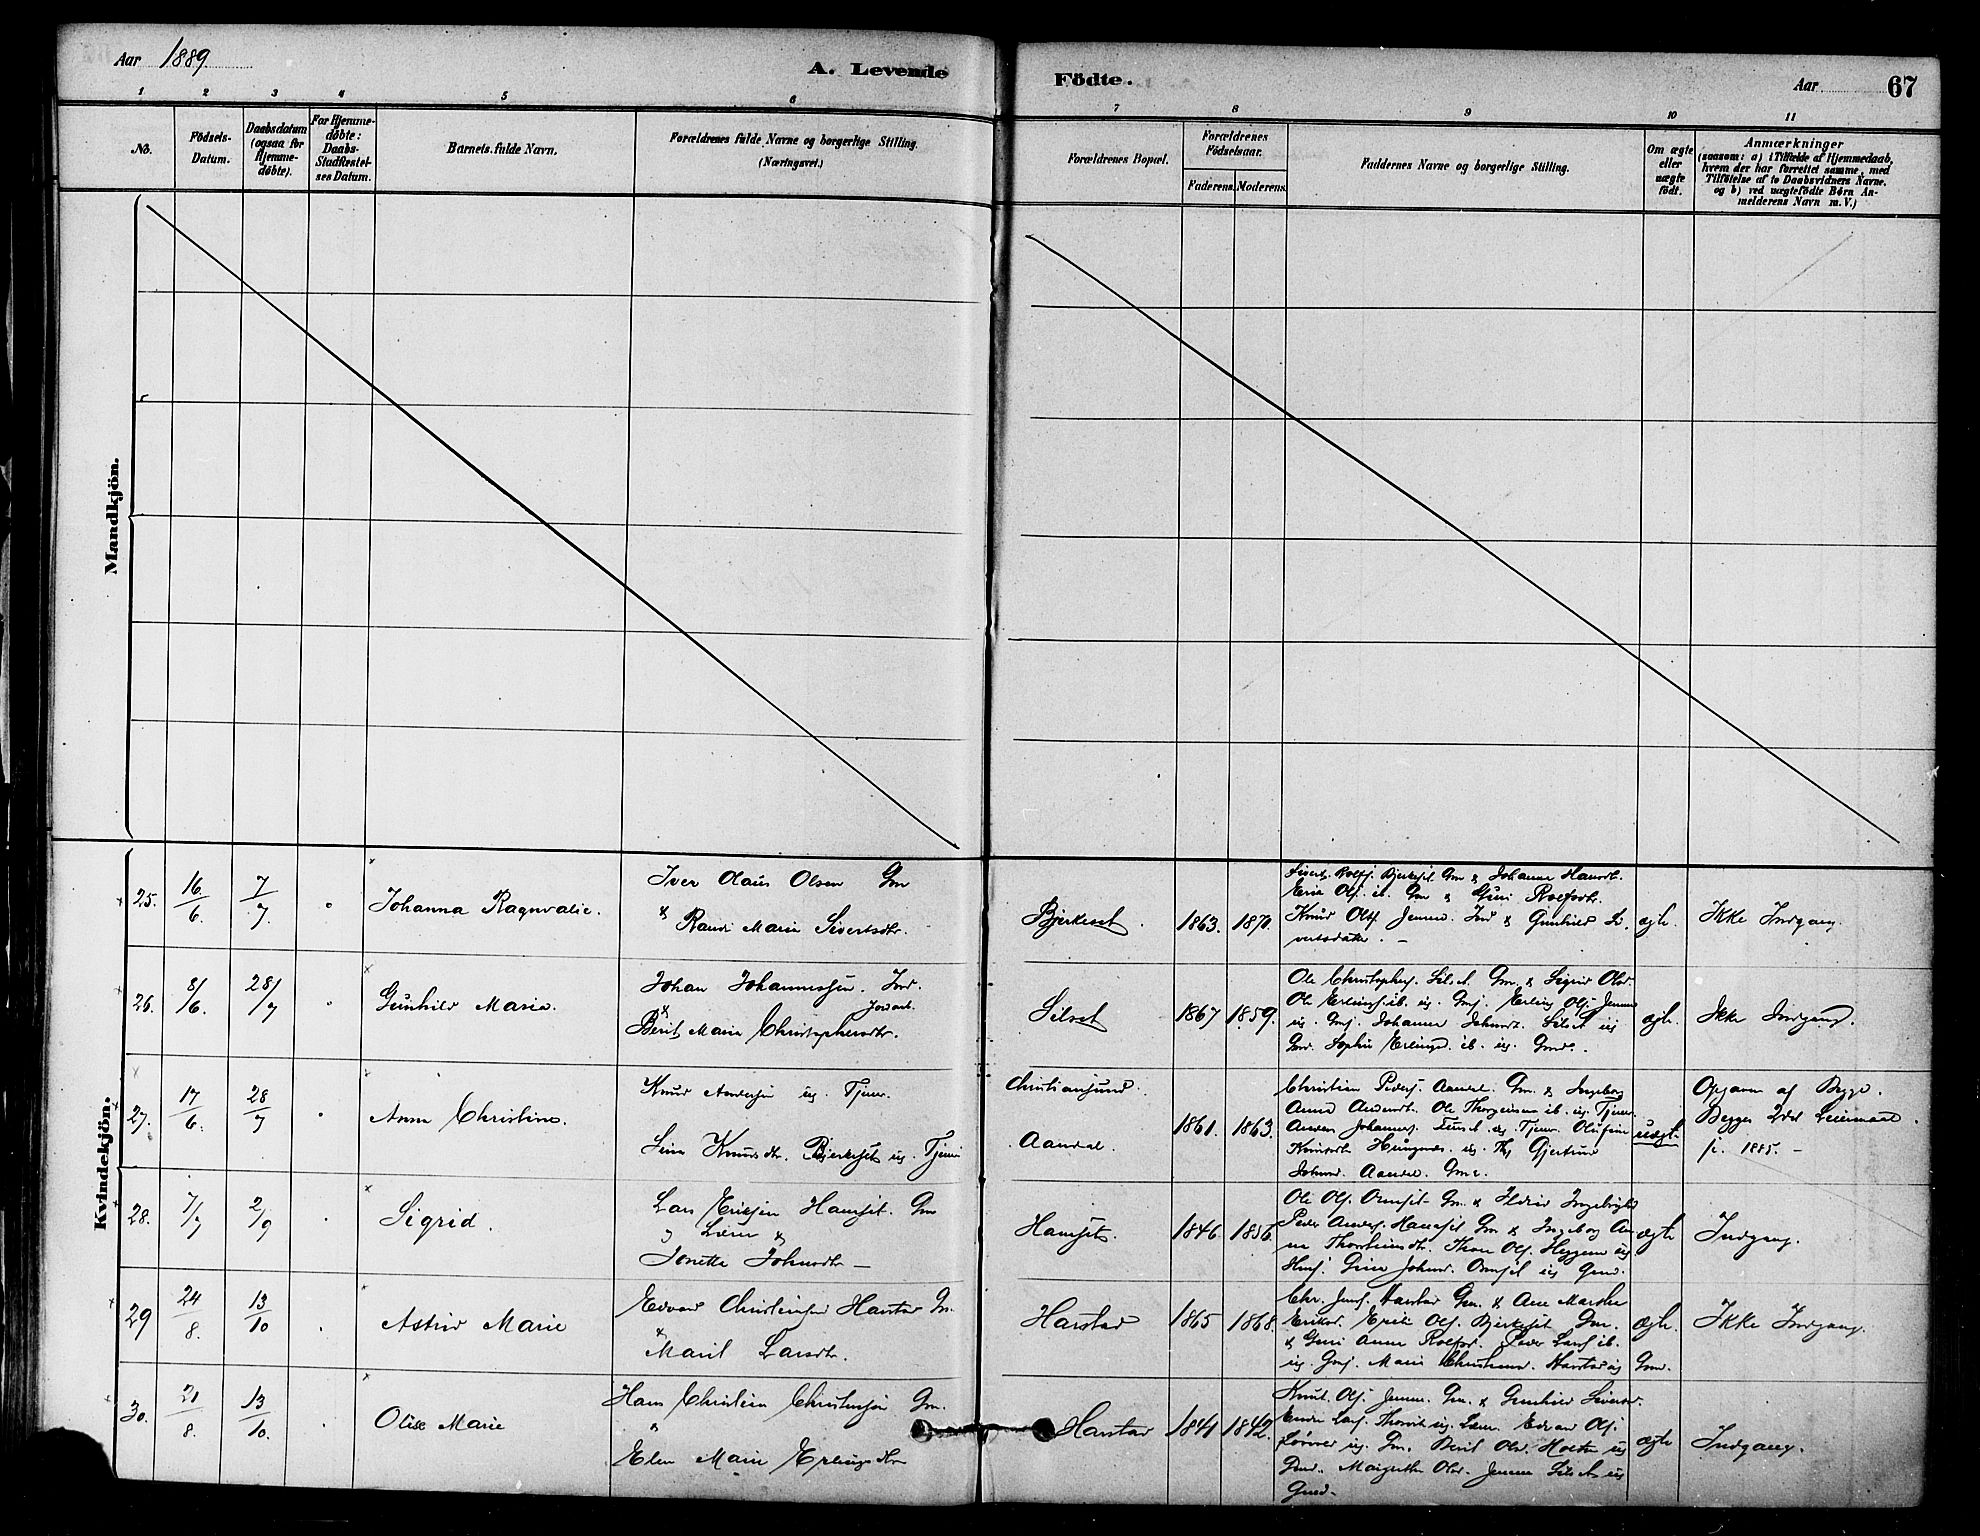 Aar 1889.
A. Levende
Födte.
Aar
67
1 2 3 4 5 6 7 8 9 10 11
No.
Födsels-
Datum.
Daabsdatum
(ogsaa for
Hjemme-
døbte).
For Hjemme-
døbte:
Daabs-
Stadfæstel-
ses Datum.
Barnets fulde Navn.
Forældrenes fulde Navne og borgerlige Stilling.
(Næringsvei.)
Forældrenes Bopæl.
Forældrenes
Födselsaar.
Faderens. Moderens.
Faddernes Navne og borgerlige Stilling.
Om ægte
eller
uægte
født.
Anmærkninger
(saasom: a) i Tilfælde af Hjemmedaab,
hvem der har forrettet samme, med
Tilføielse af to Daabsvidners Navne,
og b) ved uægtefødte Börn An-
melderens Navn m. V.)
Mandkjön.
Kvindekjön.
25.
16/6
7/7
Johanna Ragnvalie.
Iver Olaus Olsen Gm
& Randi Marie Sivertsdtr.
Bjerkeset
1863. 1870.
Sivert Rolfs. Bjerkeset Gm & Johanna Hansdt.
Erik Ols. ib. Gm & Guri Rolfsdtr.
Knud Ols. Jenne. Ind & Gunhild Si-
vertsdatr. —
ægte.
Ikke Indgang.
26.
8/6.
28/7
Gunhild Maria.
Johan Johannessen. Ind.
&
Berit Marie Christophersdtr.
Silset
1867 1859.
Ole Christophers. Silset Gm. & Sigrid Olsd.
Ole Erlings. ib. ug. Gmf. Erling Ols. Jenne
ug. Gmf. Johanna Johnsd. Silset ug
Gmd. Sophie Erlingsd. ib. ug. Gmd.
ægte.
Ikke Indgang.
27.
17/6.
28/7
Anna Christine.
Knud Andersen ug. Tjener.
Sina Knudsdtr. Bjerkeset ug. Tjener
Christiansund.
Aandal
1861. 1863.
Christian Peders. Aandal. Gm. & Ingeborg
Anna Andersdt. Ole Thorgeirsen ib. ug. Tjener.
Anders Johannes. Fuset ug. Tjener. Olufine
Knudsdt ug.
Johnsd. Aandal. Gmd.
uægte
Opgaven af Begge.
Begges 2det Leiermaal.
fr. 1885. —
28.
7/7
2/9
Sigrid.
Lars Eriksen Hamset. Gm
og Lærer &
Jonetta Johnsdtr —
Hamset.
1846. 1856.
Ole Ols. Ormset Gm. & Ildrid Ingebrigtsd
Peder Anders. Hamset Gm & Ingeborg An-
ne Thorsteinsdt. Thore Ols. Heggem ug
Johnsd. Ormset ug Gmd.
ægte
Indgang.
29
24/8.
13/10
Astrid Marie
Edvard Christensen Harstad Gm.
& Marit Larsdtr.
Harstad
1865 1868.
Chr. Jens. Harstad Gm. & Ane Marthe
Eriksd. Erik Ols. Bjerkeset Gm.
& Guri Anne Rolfsd. Peder Lars. ib.
ug. Gmf. Marie Christensd. Harstad ug Gmd.
ægte.
Ikke Indgang.
30.
21/8.
13/10.
Olise Marie
Hans Christian Christensen Gm.
&
Elen Marie Erlingsdtr
Harstad
1841 1842.
Knut Ols. Jenne. Gm. & Gunhild Sivertsd.
Endre Lars. Thorvik ug. Lærer. Edvard Ols.
ug. Gm. Berit Olsd. Holten ug
Gmd. Margrethe Olsd. Jenne Silset ug
Gmd.
ægte
Indgang.